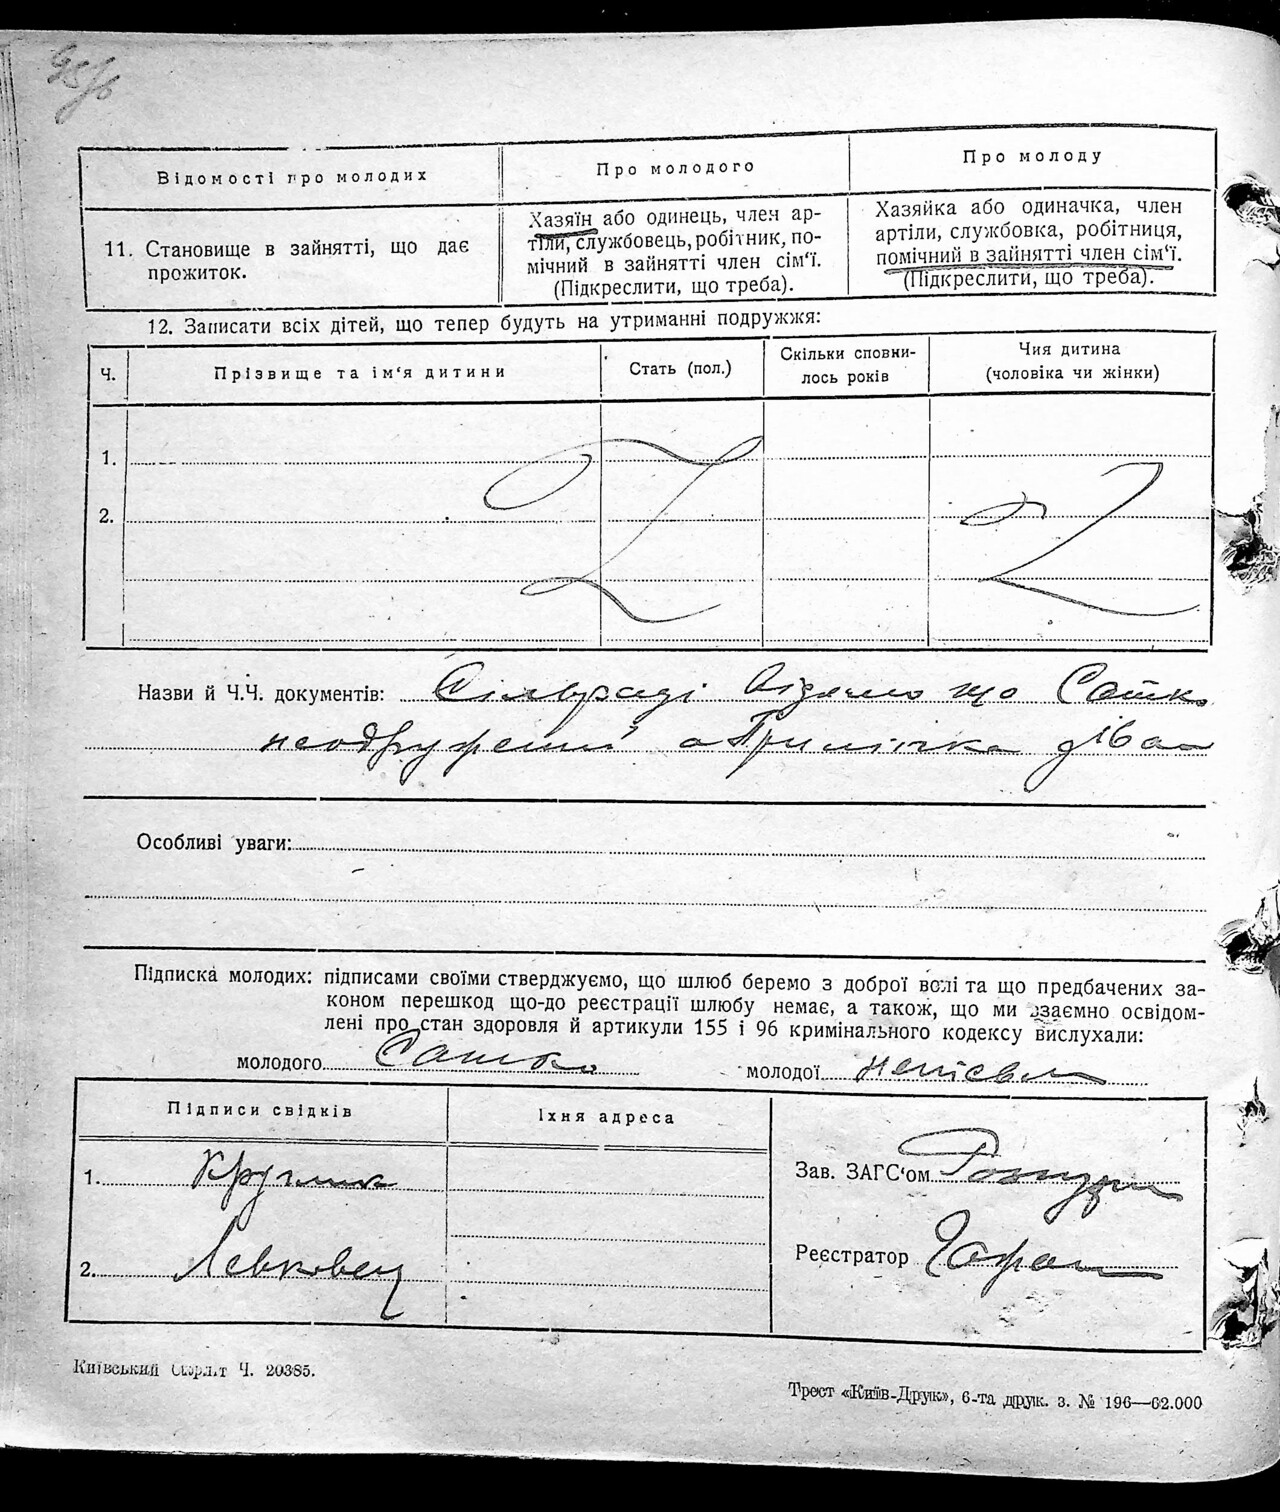 Відомості про молодих
Про молодого
Про молоду
11. Становище в зайнятті, що дає
прожиток.
Хазяїн або одинець, член ар-
тіли, службовець, робітник, по-
мічний в зайнятті член сім'ї.
(Підкреслити, що треба).
Хазяйка або одиначка, член
артіли, службовка, робітниця,
помічний в зайнятті член сім'ї.
(Підкреслити, що треба).
12. Записати всіх дітей, що тепер будуть на утриманні подружжя:
Ч.
Прізвище та ім'я дитини
Стать (пол.)
Скільки сповни-
лось років
Чия дитина
(чоловіка чи жінки)
1.
2.
Назви й Ч.Ч. документів: Сільраді відомо що Сашко
неодружений а
Особливі уваги:
Підписка молодих: підписами своїми стверджуємо, що шлюб беремо з доброї волі та що предбачених за-
коном перешкод що-до реєстрації шлюбу немає, а також, що ми взаємно освідом-
лені про стан здоровля й артикули 155 і 96 кримінального кодексу вислухали:
молодого Сашко
молодої неписьм
Підписи свідків
Їхня адреса
1. Круглик
2. Левковец
Зав. ЗАГС'ом
Реєстратор
Київський Ч. 20385.
Трест «Київ-Друк», 6-та друк. з. № 196—62.000